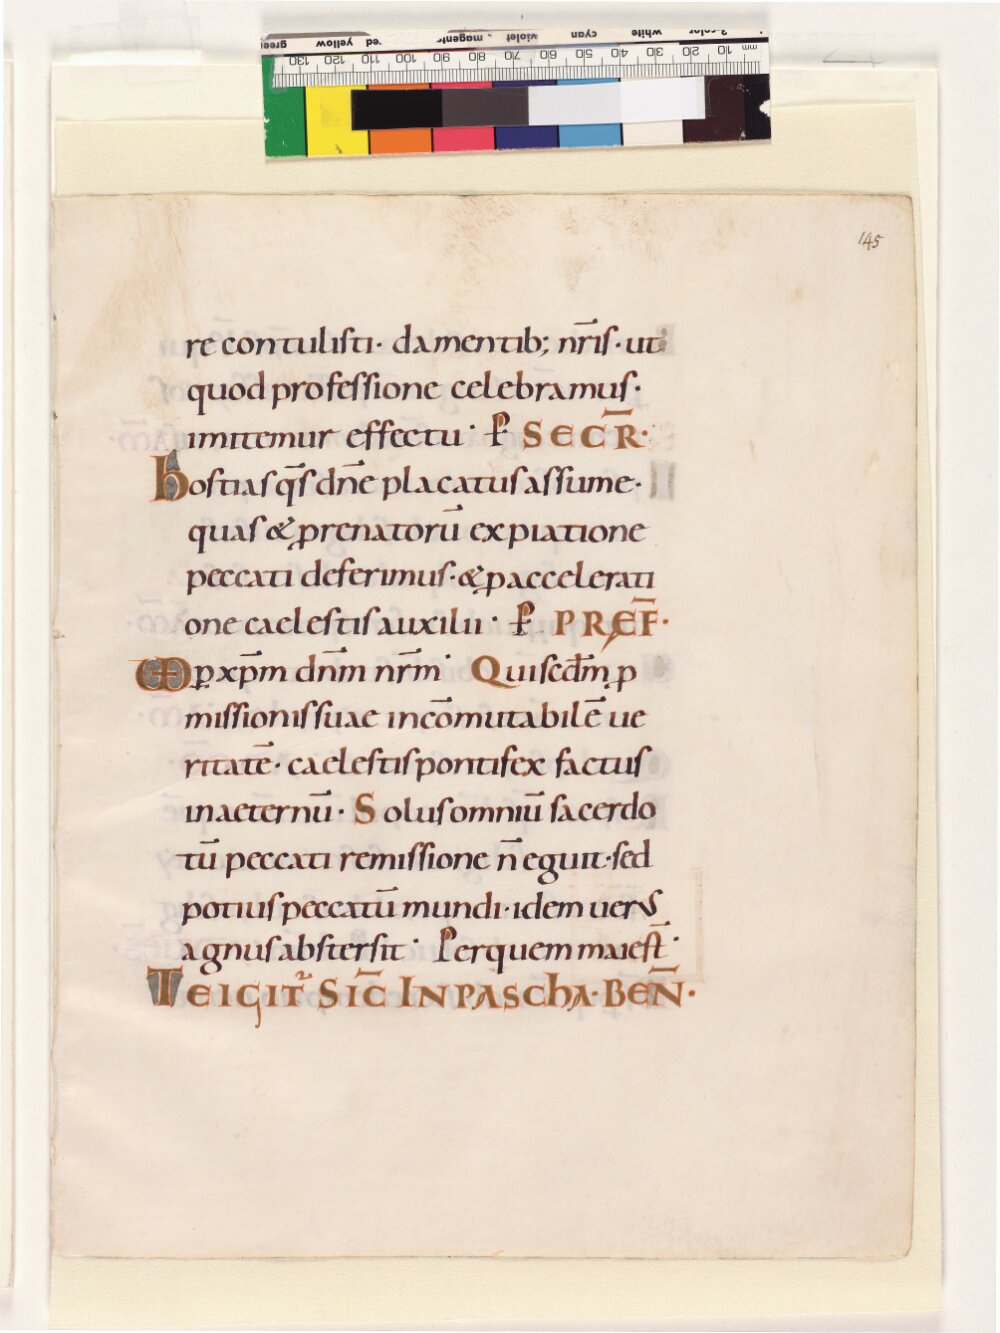 145
re contulisti· da mentib; nr̄is· ut
quod professione celebramus·
imitemur effectu· P SECR̄·
hostias qs̄ dn̄e placatus assume·
quas & prenatorū expiatione
peccati deferimus· & p accelerati
one caelestis auxilii· P PREF̄·
p xp̄m dn̄m nr̄m· Qui scdm̄ p
missionis suae incōmutabilē ue
ritatē· caelestis pontifex factus
in aeternū· Solus omniū sacerdo
tū peccati remissione n̄ eguit· sed
potius peccatū mundi· idem uerus
agnus abstersit· Per quem maiest̄·
TE IGIT̄ SIC̄ IN PASCHA· BEN̄·